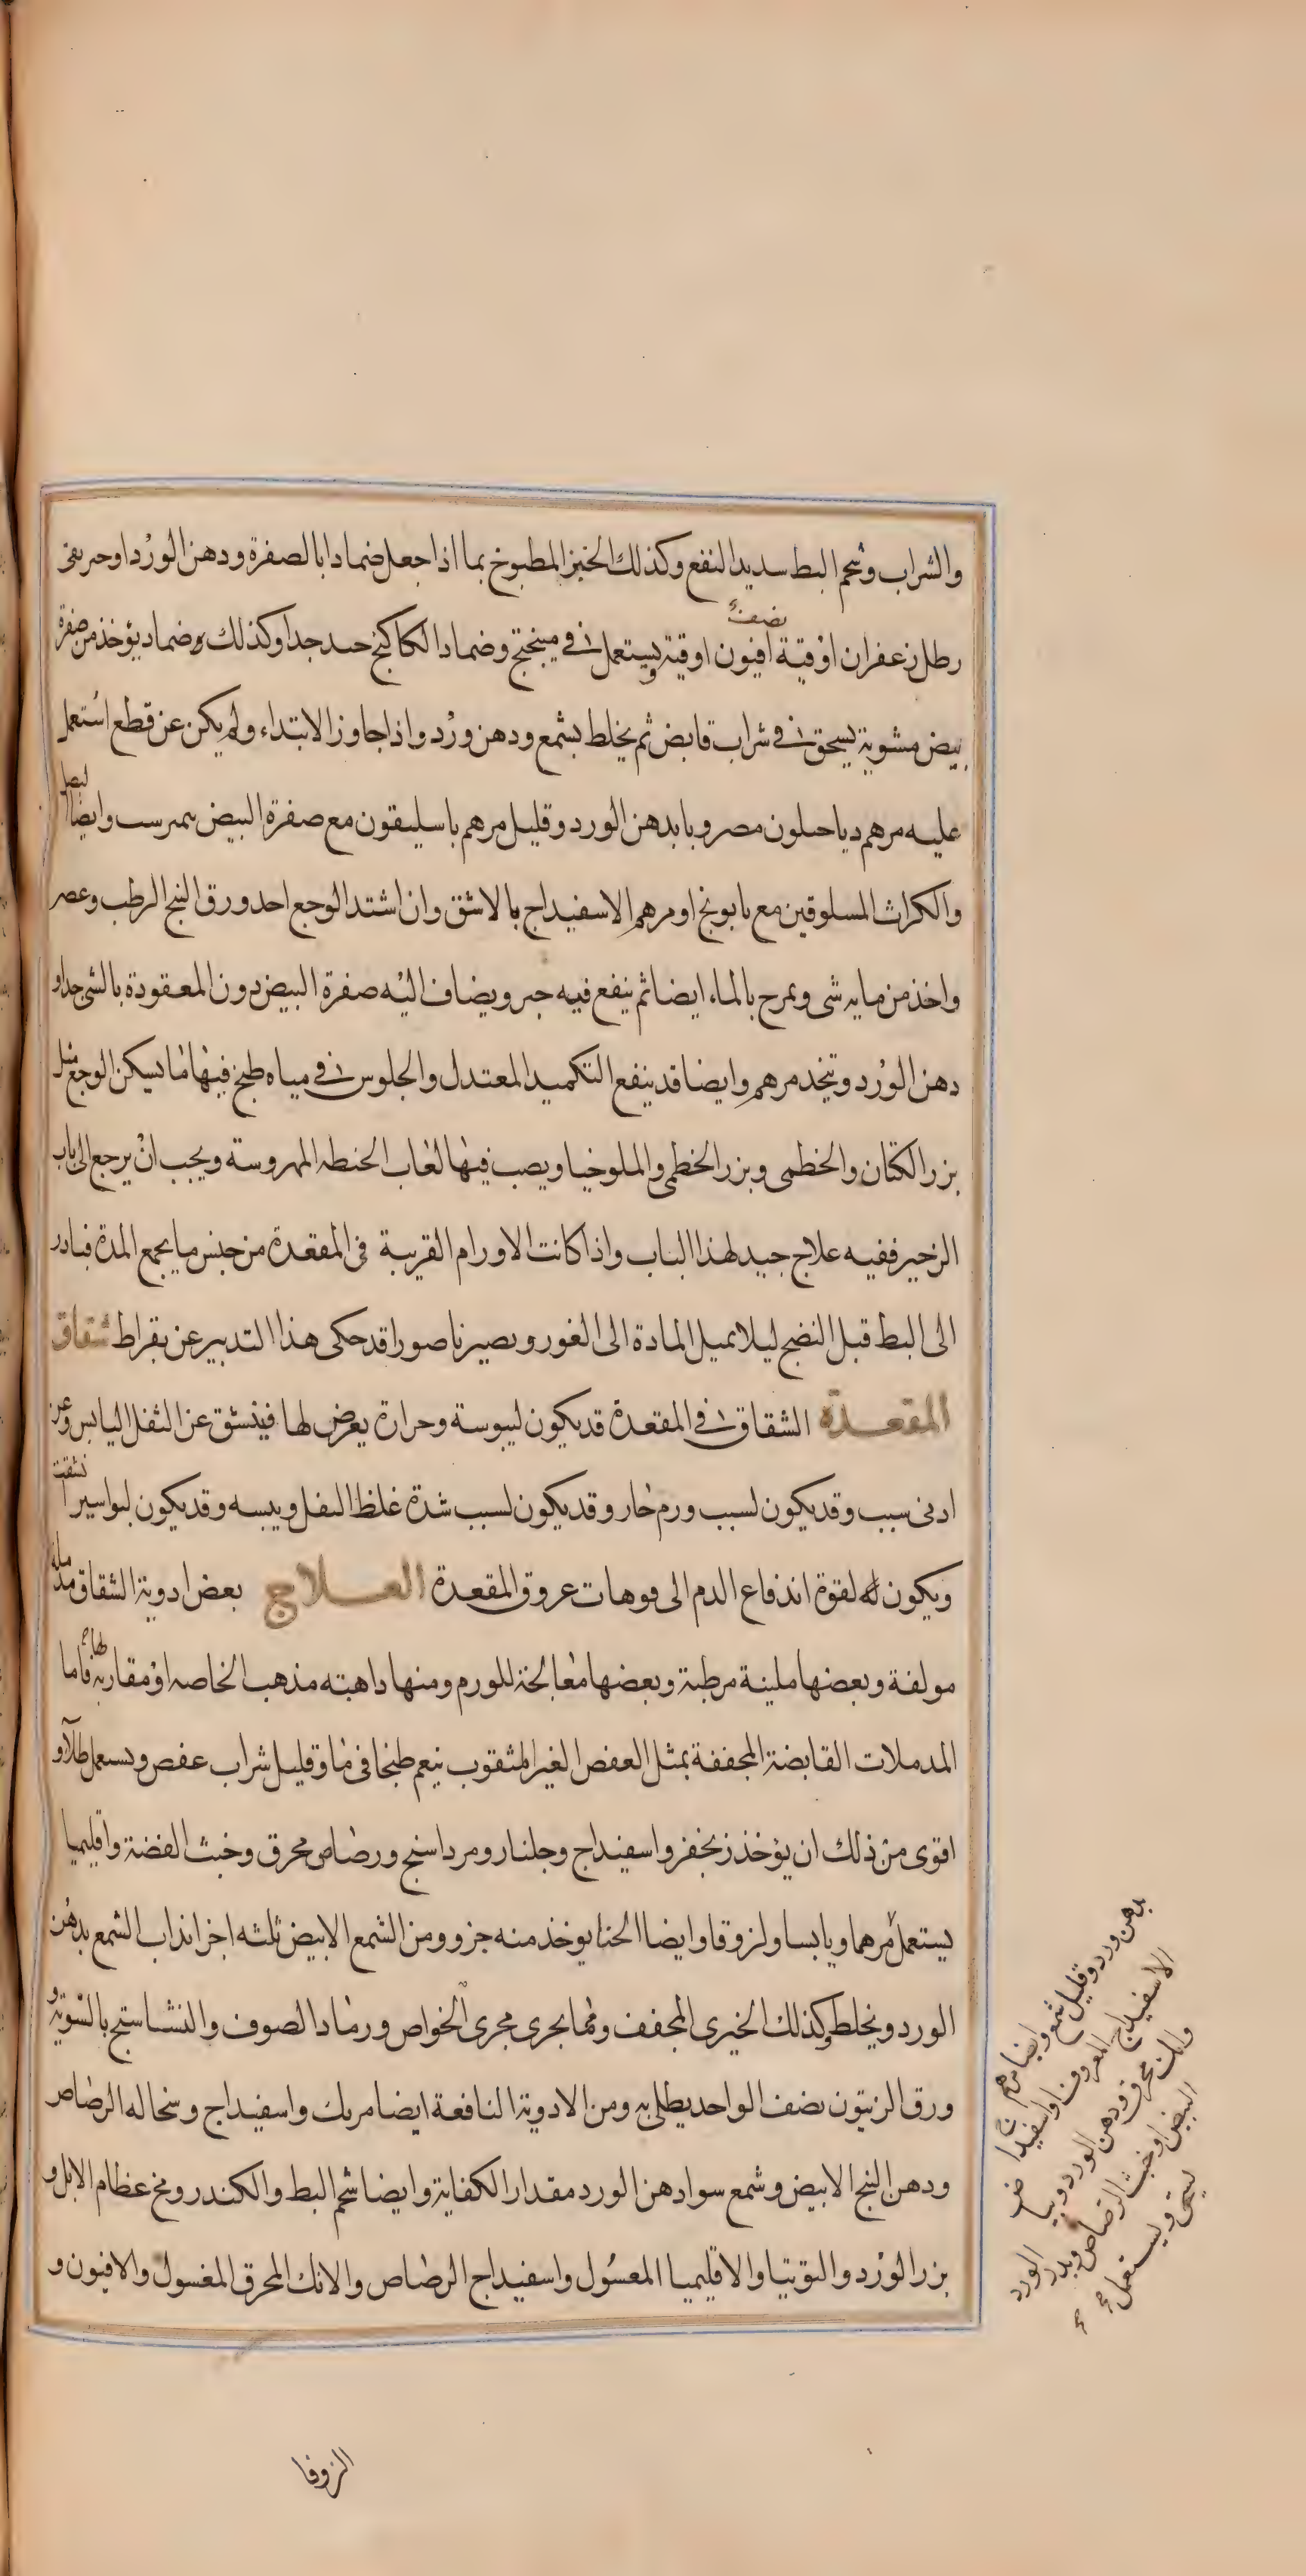 والشراب وشحم البط سديد النفع وكذلك الخبز المطبوخ بما اذا جعل ضمادا بالصفرة ودهن الورد او
رطل زعفران اوقية افيون نصف اوقية ويستعمل في ميبختج وضماد الكاكنج حسد جدا وكذلك ضماد يؤخذ من صفرة
بيض مشوية يسحق في شراب قابض ثم يخلط بشمع ودهن ورد واذا جاوز الابتداء ولم يكن عن قطع استعمل
عليه مرهم دياحىلون مضروبا بدهن الورد وقليل مرهم باسليقون مع صفرة البيض وايضا البصل
والكراث المسلوقين مع بابونج او مرهم الاسفيداج بالاشق وان اشتد الوجع احد ورق البنج الرطب وعصر
واخذ من مايه شى ويمرح بالماء ايضا ثم ينقع فيه خبز ويضاف اليه صفرة البيض دون المعقودة بالشى جدا و
دهن الورد ويتخذ مرهم وايضا قد ينفع التكميد المعتدل والجلوس في مياه طبخ فيها ما يسكن الوجع مثل
بزر الكتان والخطمى وبزر الخطمى والملوخيا ويصب فيها لعاب الحنطه المهروسة ويجب ان يرجع الى باب
الزحير ففيه علاج جيد لهذا الباب واذا كانت الاورام القريبة فى المقعدة من جنس ما يجمع المدة فبادر
الى البط قبل النضج ليلا تميل المادة الى الغور ويصير ناصورا قد حكى هذا التدبير عن بقراط شقاق
المقعدة الشقاق في المقعدة قد يكون ليبوسة وحرارة يعرض لها فينشق عن الثفل اليابس وعن
ادنى سبب وقد يكون لسبب ورم حار وقد يكون لسبب شدة غلظ الثفل ويبسه وقد يكون لبواسير انشقت
ويكون له لقوة اندفاع الدم الى فوهات عروق المقعدة العلاج بعض ادوية الشقاق مدمله
مولفة وبعضها ملينة مرطبة وبعضها معالجة للورم ومنها ذاهبته مذهب الخاصه او مقاربة لها فاما
المدملات القابضة المجففة بمثل العفص الغير المثقوب ينعم طبخا فى ماو قليل شراب عفص ويستعمل طلآو
اقوى من ذلك ان يؤخذ زنجفر واسفيداج وجلنار ومرداسنج ورصاص محرق وخبث الفضة واقليميا
يستعمل مرهما ويابسا ولزوقا وايضا الحنا يوخذ منه جزو ومن الشمع الابيض ثلثه اجزا نذاب الشمع بدهن
الورد ويخلط وكذلك الخيرى المجفف ومما يجرى مجرى الخواص ورماد الصوف والنشاستج بالسوية و
ورق الزيتون نصف الواحد يطلى به ومن الادوية النافعة ايضا مرتك واسفيداج وسحاله الرصاص
ودهن البنج الابيض وشمع سوا دهن الورد مقدار الكفاية وايضا شحم البط والكندر ومخ عظام الابل و
بزر الورد والتوتيا والاقليميا المغسول واسفيداج الرصاص والانك المحرق المغسول والافيون و
بدهن ورد وقليل شمع وايضا مرهم
الاسفيداج المعروف او اسفيداج
وانك محرق ودهن الورد
البيض او خبث الرصاص الورد
يسحق ويستعمل
الزوفا